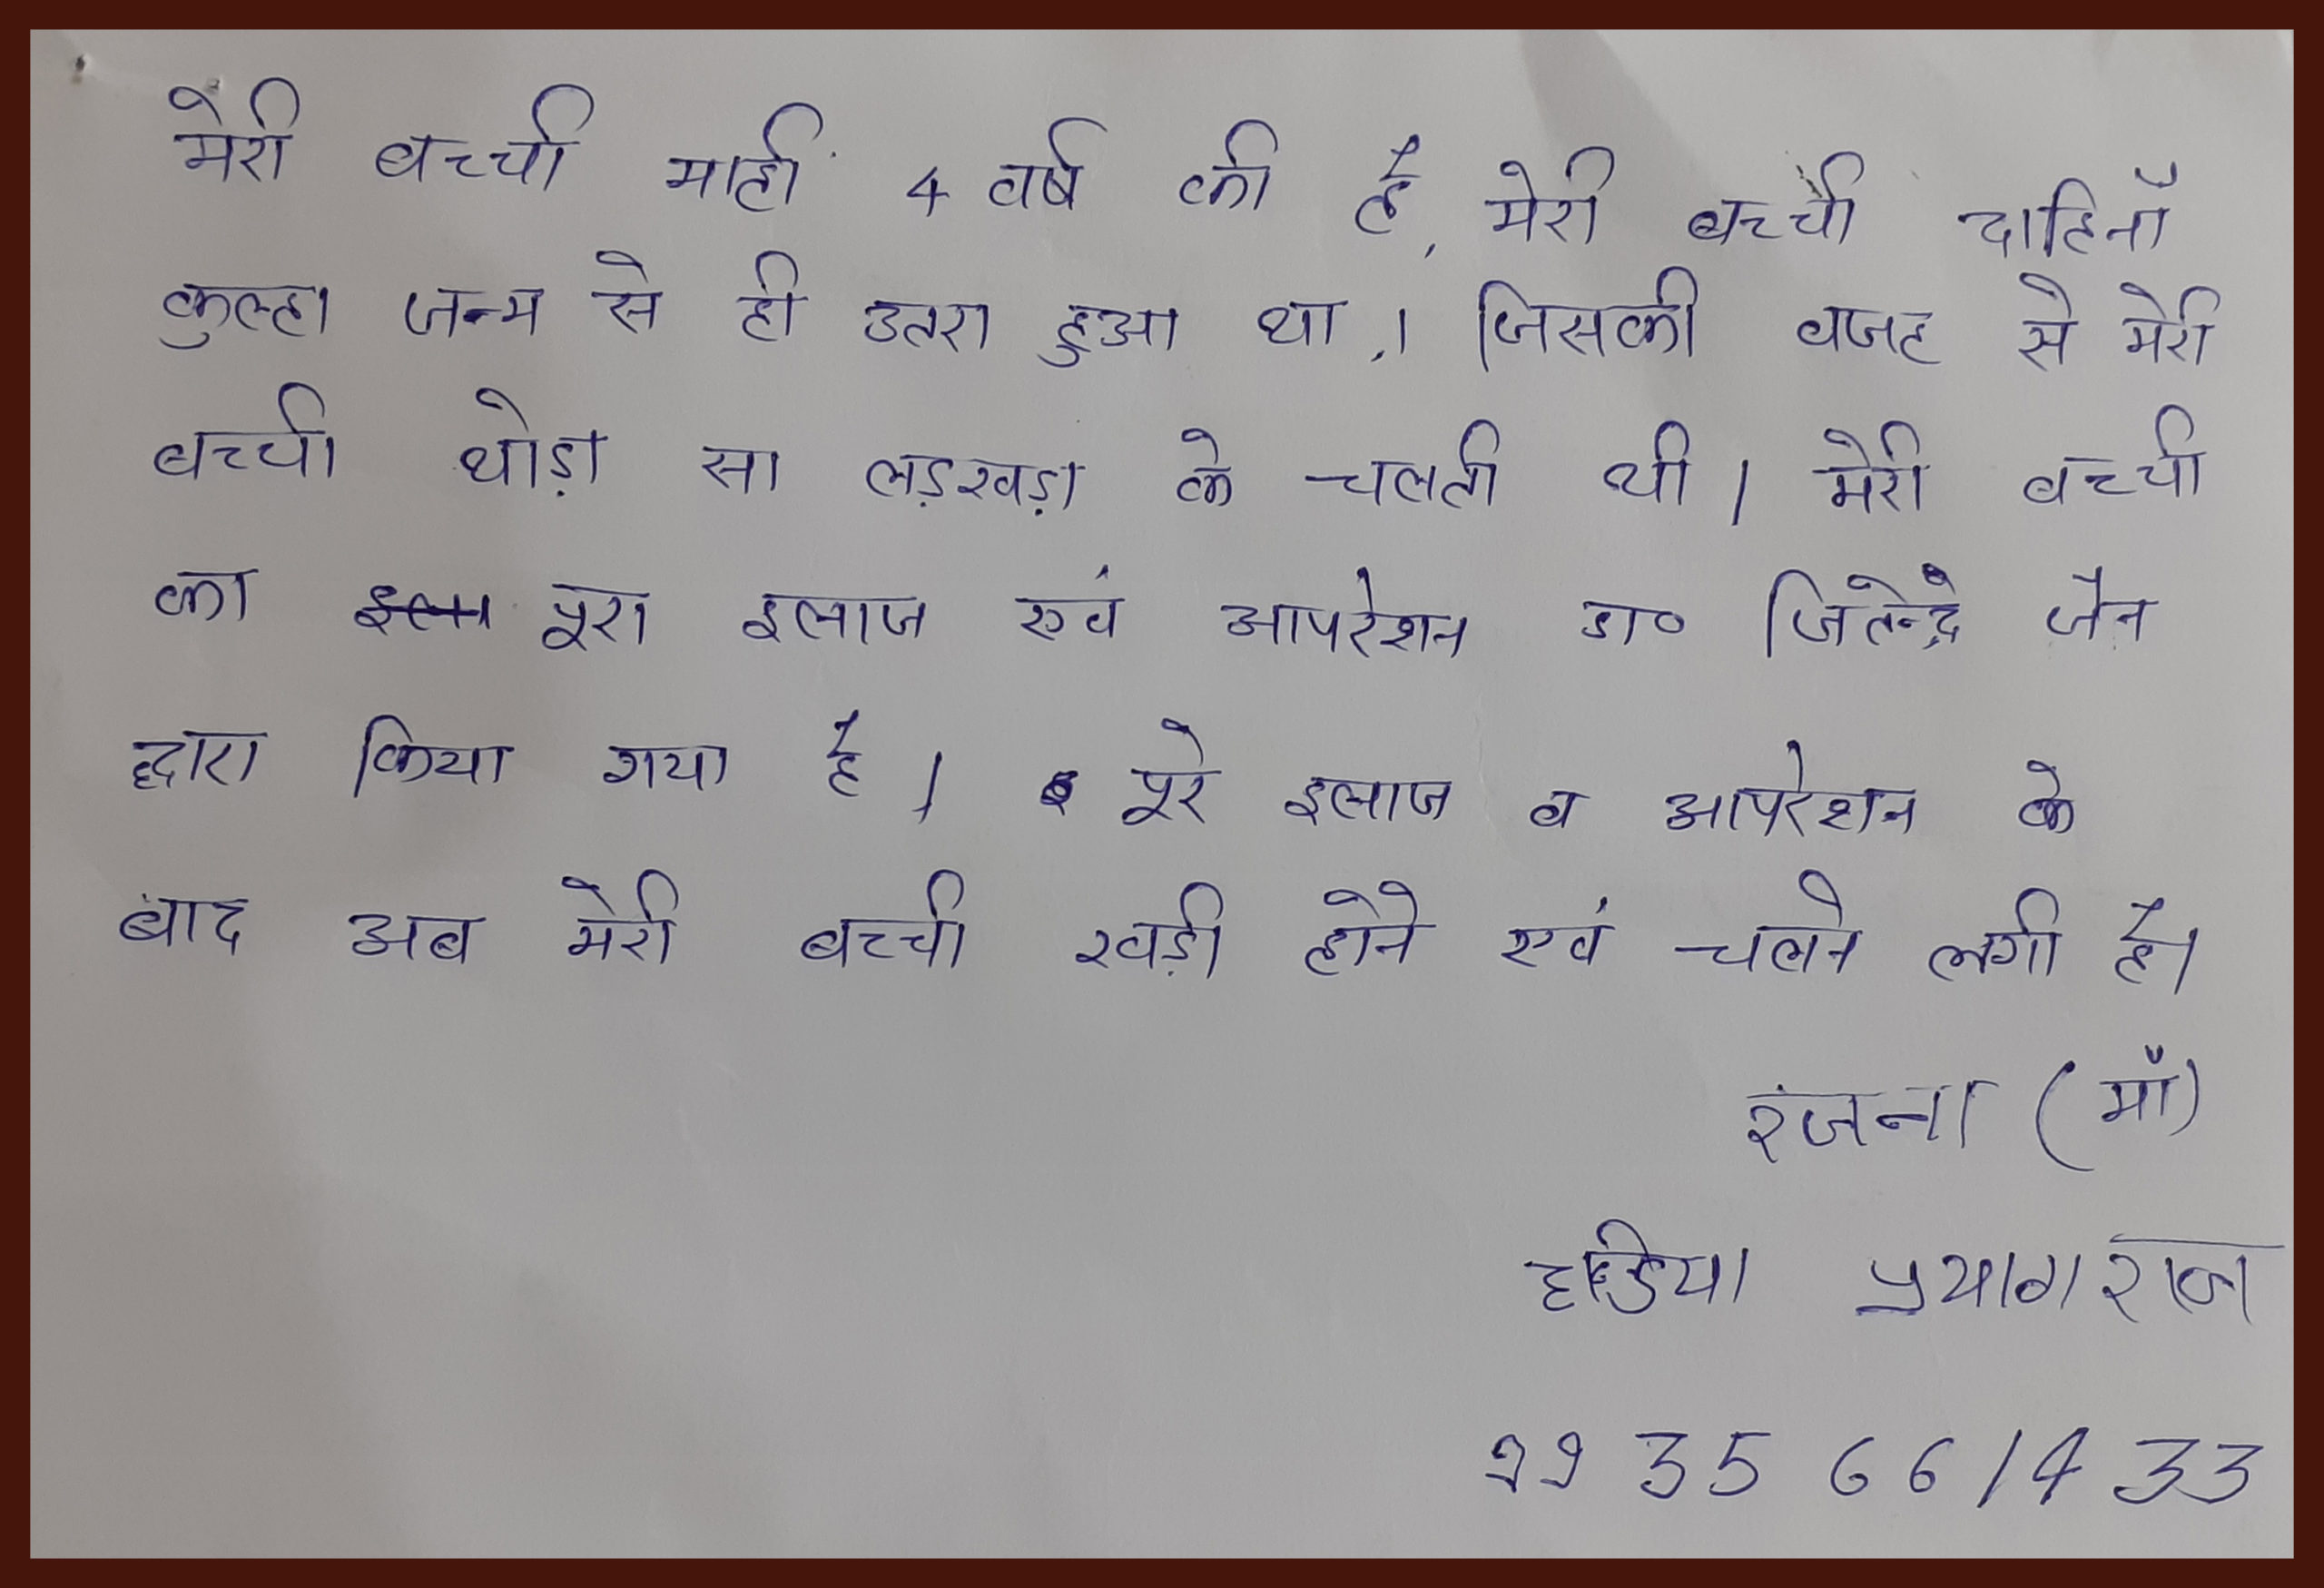 मेरी बच्ची माही 4 वर्ष की है, मेरी बच्ची दाहिनाँ
कुल्हा जन्म से ही उतरा हुआ था,। जिसकी वजह से मेरी
बच्ची थोड़ा सा लड़खड़ा के चलती थी। मेरी बच्ची
का पूरा इलाज एवं आपरेशन डा० जितेन्द्र जैन
द्वारा किया गया है। पूरे इलाज व आपरेशन के
बाद अब मेरी बच्ची खड़ी होने एवं चलने लगी है।
रंजना (माँ)
हंडिया प्रयागराज
99 35 66 14 33